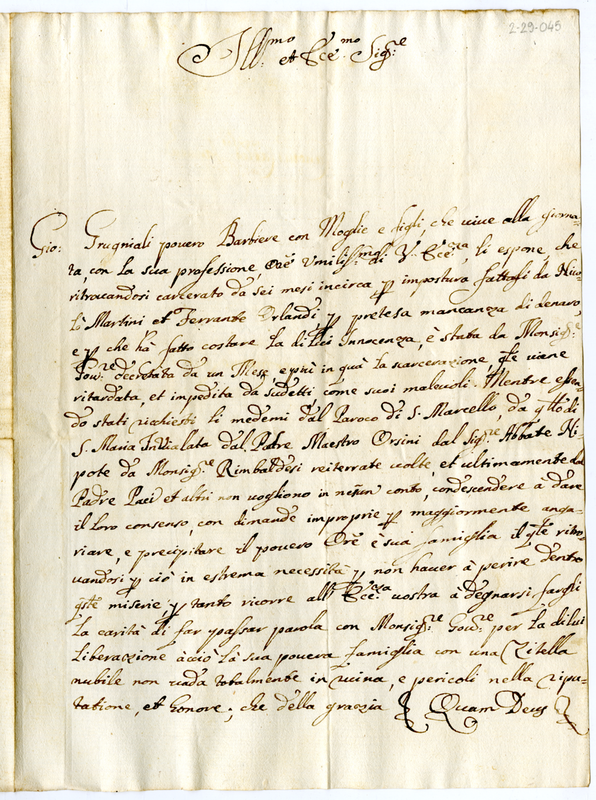 2-29-045
Ill:mo et Ecc:mo Sig:re
Gio: Grugniali povero Barbiere con Moglie e figli, che vive alla giorna-
ta con la sua professione, Ore Umiliss:mo di V. Ecc:za, li espone, che
ritrovandosi carcerato da sei mesi incirca p impostura fattasi da Nico-
lò Martini et Ferrante Orlandi, p pretesa mancanza di denaro,
e p che hà fatto costare la di lui Innocenza, è stata da Monsig:r
Gov:re decretata da un Mese e più in quà la scarcerazione, qle viene
ritardata, et impedita da sudetti, come suoi malevoli. Mentre essen-
do stati richiesti li medemi dal Paroco di S. Marcello, da qllo di
S. Maria Inviolata dal Padre Maestro Orsini dal Sig:re Abbate Ni-
pote da Monsig:re Rimbaldesi reiterrate volte, et ultimamente dal
Padre Paci et altri non vogliono in nesun conto, condescendere à dare
il loro consenso, con dimande improprie p maggiormente anga-
riare, e precipitare il povero Ore è sua famiglia il qle ritro-
vandosi p ciò in estrema necessità p non haver à perire dentro
qste miserie, p tanto ricorre all' Ecc:za vostra à degnarsi fargli
la carità di far passar parola con Monsig:re Gov:re per la di lui
Liberazione àcciò la sua povera famiglia con una Zitella
nubile non vada totalmente in ruina, e pericoli nella ripu-
tatione, et honore; che della grazia Quam Deus